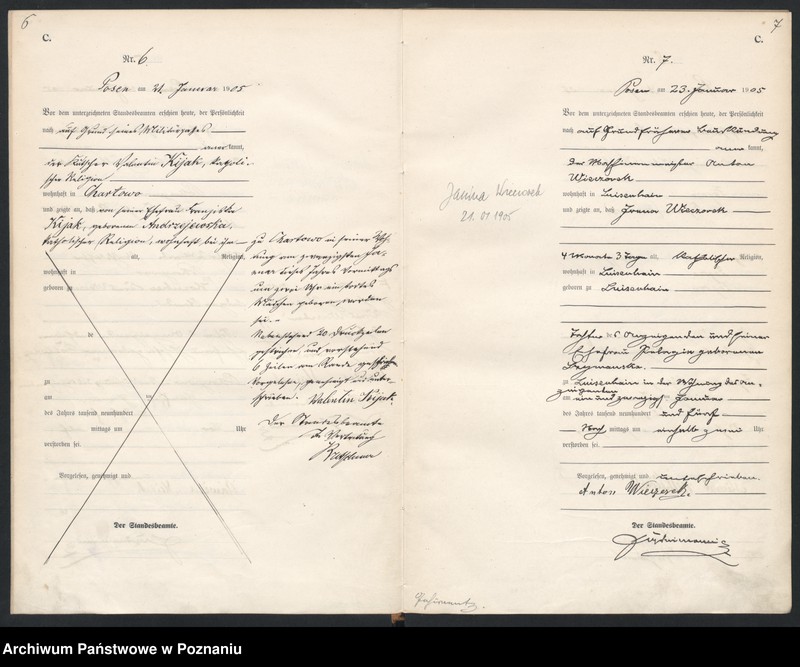 6
C.
Nr. 6.
Posen am 21. Januar 1905
Vor dem unterzeichneten Standesbeamten erschien heute, der Persönlichkeit
nach auf Grund seines Militärpasses
aner kannt,
der Kutscher Valentin Kijak, katholi-
scher Religion
wohnhaft in Chartowo
und zeigte an, daß von seiner Ehefrau Franziska
Kijak, geborenen Andrzejewska,
katholischer Religion, wohnhaft bei ihm
alt, Religion,
wohnhaft in
geboren zu
de
zu
am
des Jahres tausend neunhundert
mittags um Uhr
verstorben sei.
Vorgelesen, genehmigt und
Der Standesbeamte.
zu Chartowo in seiner Woh-
nung am zwanzigsten Ja-
nuar dieses Jahres Vormittags
um zwei Uhr ein todtes
Mädchen geboren worden
sei.
Nebenstehend 20 Druckzeilen
gestrichen und vorstehend
6 Zeilen am Rande
Vorgelesen, genehmigt und unter-
schrieben. Valentin Kijak
Der Standesbeamte
In Vertretung
7
C.
Nr. 7.
Posen am 23. Januar 1905
Vor dem unterzeichneten Standesbeamten erschien heute, der Persönlichkeit
nach auf Grund früherer Beurkundung
aner kannt,
der Anton
Wieczorek
wohnhaft in Luisenhain
und zeigte an, daß Janina Wieczorek
4 Monate 3 Tage alt, katholischer Religion,
wohnhaft in Luisenhain
geboren zu Luisenhain
Tochter des Anzeigenden und seiner
Ehefrau Pelagia geborenen
Szymanska
zu Luisenhain in der Wohnung des An-
zeigenden
am ein und zwanzigsten Januar
des Jahres tausend neunhundert und fünf
Nach mittags um einhalb zwei Uhr
verstorben sei.
Vorgelesen, genehmigt und unterschrieben.
Anton Wieczorek.
Der Standesbeamte.
Janina Wieczorek
21.01.1905
Archiwum Państwowe w Poznaniu